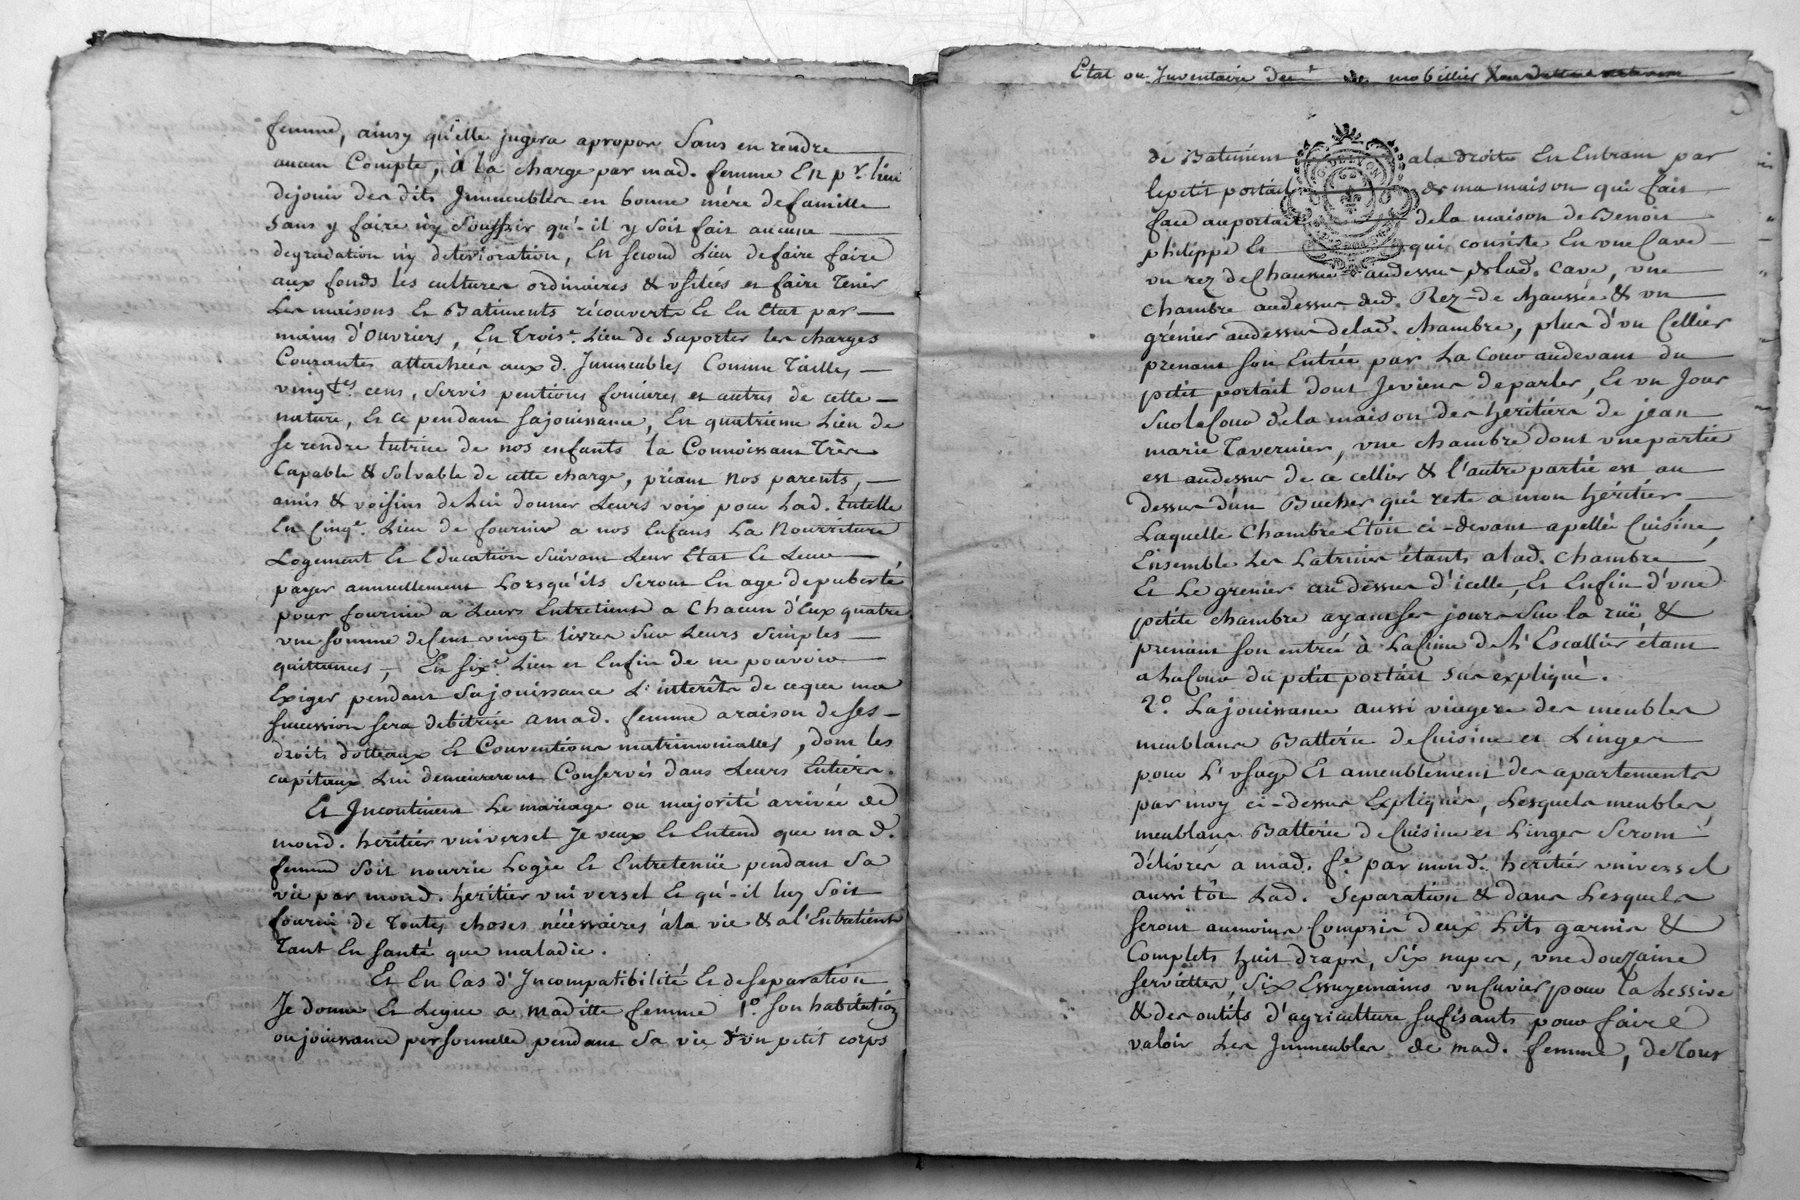 femme, ainsy qu'elle jugera apropos Sans en rendre
aucun Compte, à la charge par mad. femme En pr. lieu
dejouir des dits Immeubles en bonne mére defamille
Sans y faire ny Souffrir qu'-il y Soit fait aucune
degradation ny deterioration, En second Lieu defaire faire
aux fonds les cultures ordinaires & usitées et faire Tenir
Les maisons Et Batiments récouverts Et En Etat par
mains d'ouvriers, En Trois.e Lieu de Suporter les charges
Courantes attachées aux d. Immeubles Comme Tailles
vingt.es cens, Servis pentions foncieres et autres de cette
nature, Et ce pendant sajouissance, En quatrieme Lieu de
se rendre tutrice de nos enfants la Connoissant Très
Capable & Solvable de cette charge, priant nos parents,
amis & voisins de Lui donner Leurs voix pour Lad. Tutelle
En Cinq.e Lieu de fournir a nos Enfans La Nourriture
Logement Et Education Suivant Leur Etat Et Leur
payer annuellement Lorsqu'ils Seront En age depuberté
pour fournir a Leurs Entretient a Chacun d'Eux quatre
une somme deCent vingt livres Sur Leurs Simples
quittances, En six.e Lieu et Enfin de ne pouvoir
Exiger pendant Sajouissance L'interêts de ceque ma
succession sera debitrice a mad. femme araison de ses
droits dotteaux Et Conventions matrimonialles, dont les
capitaux Lui demeureront Conservés dans Leurs Entiers.
Et Incontinent Le mariage ou majorité arrivée de
mond. heritier universel Je veux Et Entend que mad.
femme soit nourrie Logée Et Entretenuë pendant Sa
vie par mond. heritier universel Et qu'-il luy Soit
fourni de Toutes choses nécéssaires ala vie & al'Entretient
Tant En Santé que maladie.
Et En Cas d'Incompatibilité Et deseparation
Je donne Et Legue a maditte femme 1.° Son habitation
oujouissance personnelle pendant Sa vie d'un petit corps
Etat ou Inventaire des mobillier
de Batiment a la droite En Entrant par
lepetit portail de ma maison qui fait
face auportail de la maison de Benoit
philippe Et qui consiste En une Cave
un rez deChaussée audessus delad. cave, une
chambre audessus dud. Rez-de chaussée & un
grénier audessus delad. chambre, plus d'un Cellier
prenant Son Entrée par La Cour audevant du
petit portail dont Jeviens deparler, Et un Jour
Sur laCour de la maison des heritiers de jean
marie Tavernier, une chambre dont unepartie
est audessus de ce cellier & l'autre partie est au
dessus d'un Bucher qui reste a mon héritier,
Laquelle Chambre Etoit ci-devant apellée Cuisine,
Ensemble Les Latrines étants alad. chambre
Et Le grenier audessus d'icelle, Et Enfin d'une
petite chambre ayant ses jours Sur la ruë &
prenant Son entrée à LaCime de L'Escallier étant
a LaCour du petit portail Sus expliqué.
2.° Lajouissance aussi viagere des meubles
meublans Batterie deCuisine et Linges
pour L'usage Et ameublement des apartements
par moy ci-dessus Expliqués, Lesquels meubles
meublans Batterie deCuisine et Linges Seront
délivrés a mad. f.e par mond. heritier universel
aussi tôt Lad. Separation & dans Lesquels
seront aumoins Compris deux Lits garnis &
Complets huit draps, Six napes, une douzaine
serviettes, Six Essuyemains un Cuvier pour la Lessive
& des outils d'agriculture sufisants pour faire
valoir Les Immeubles de mad. femme, deTous